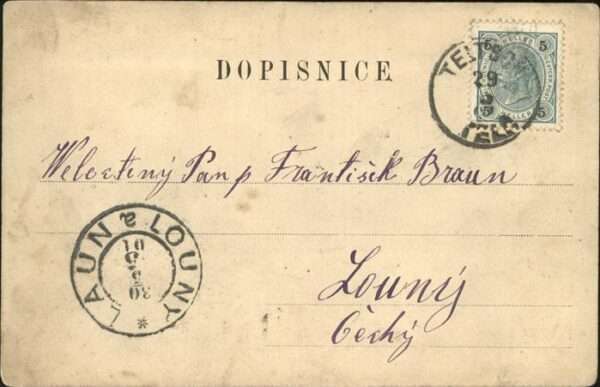 DOPISNICE
5 5
HELLER
5 5
29
Welectěný Pan p František Braun
LAUN a LOUNY
01
30
Louny
Čechy